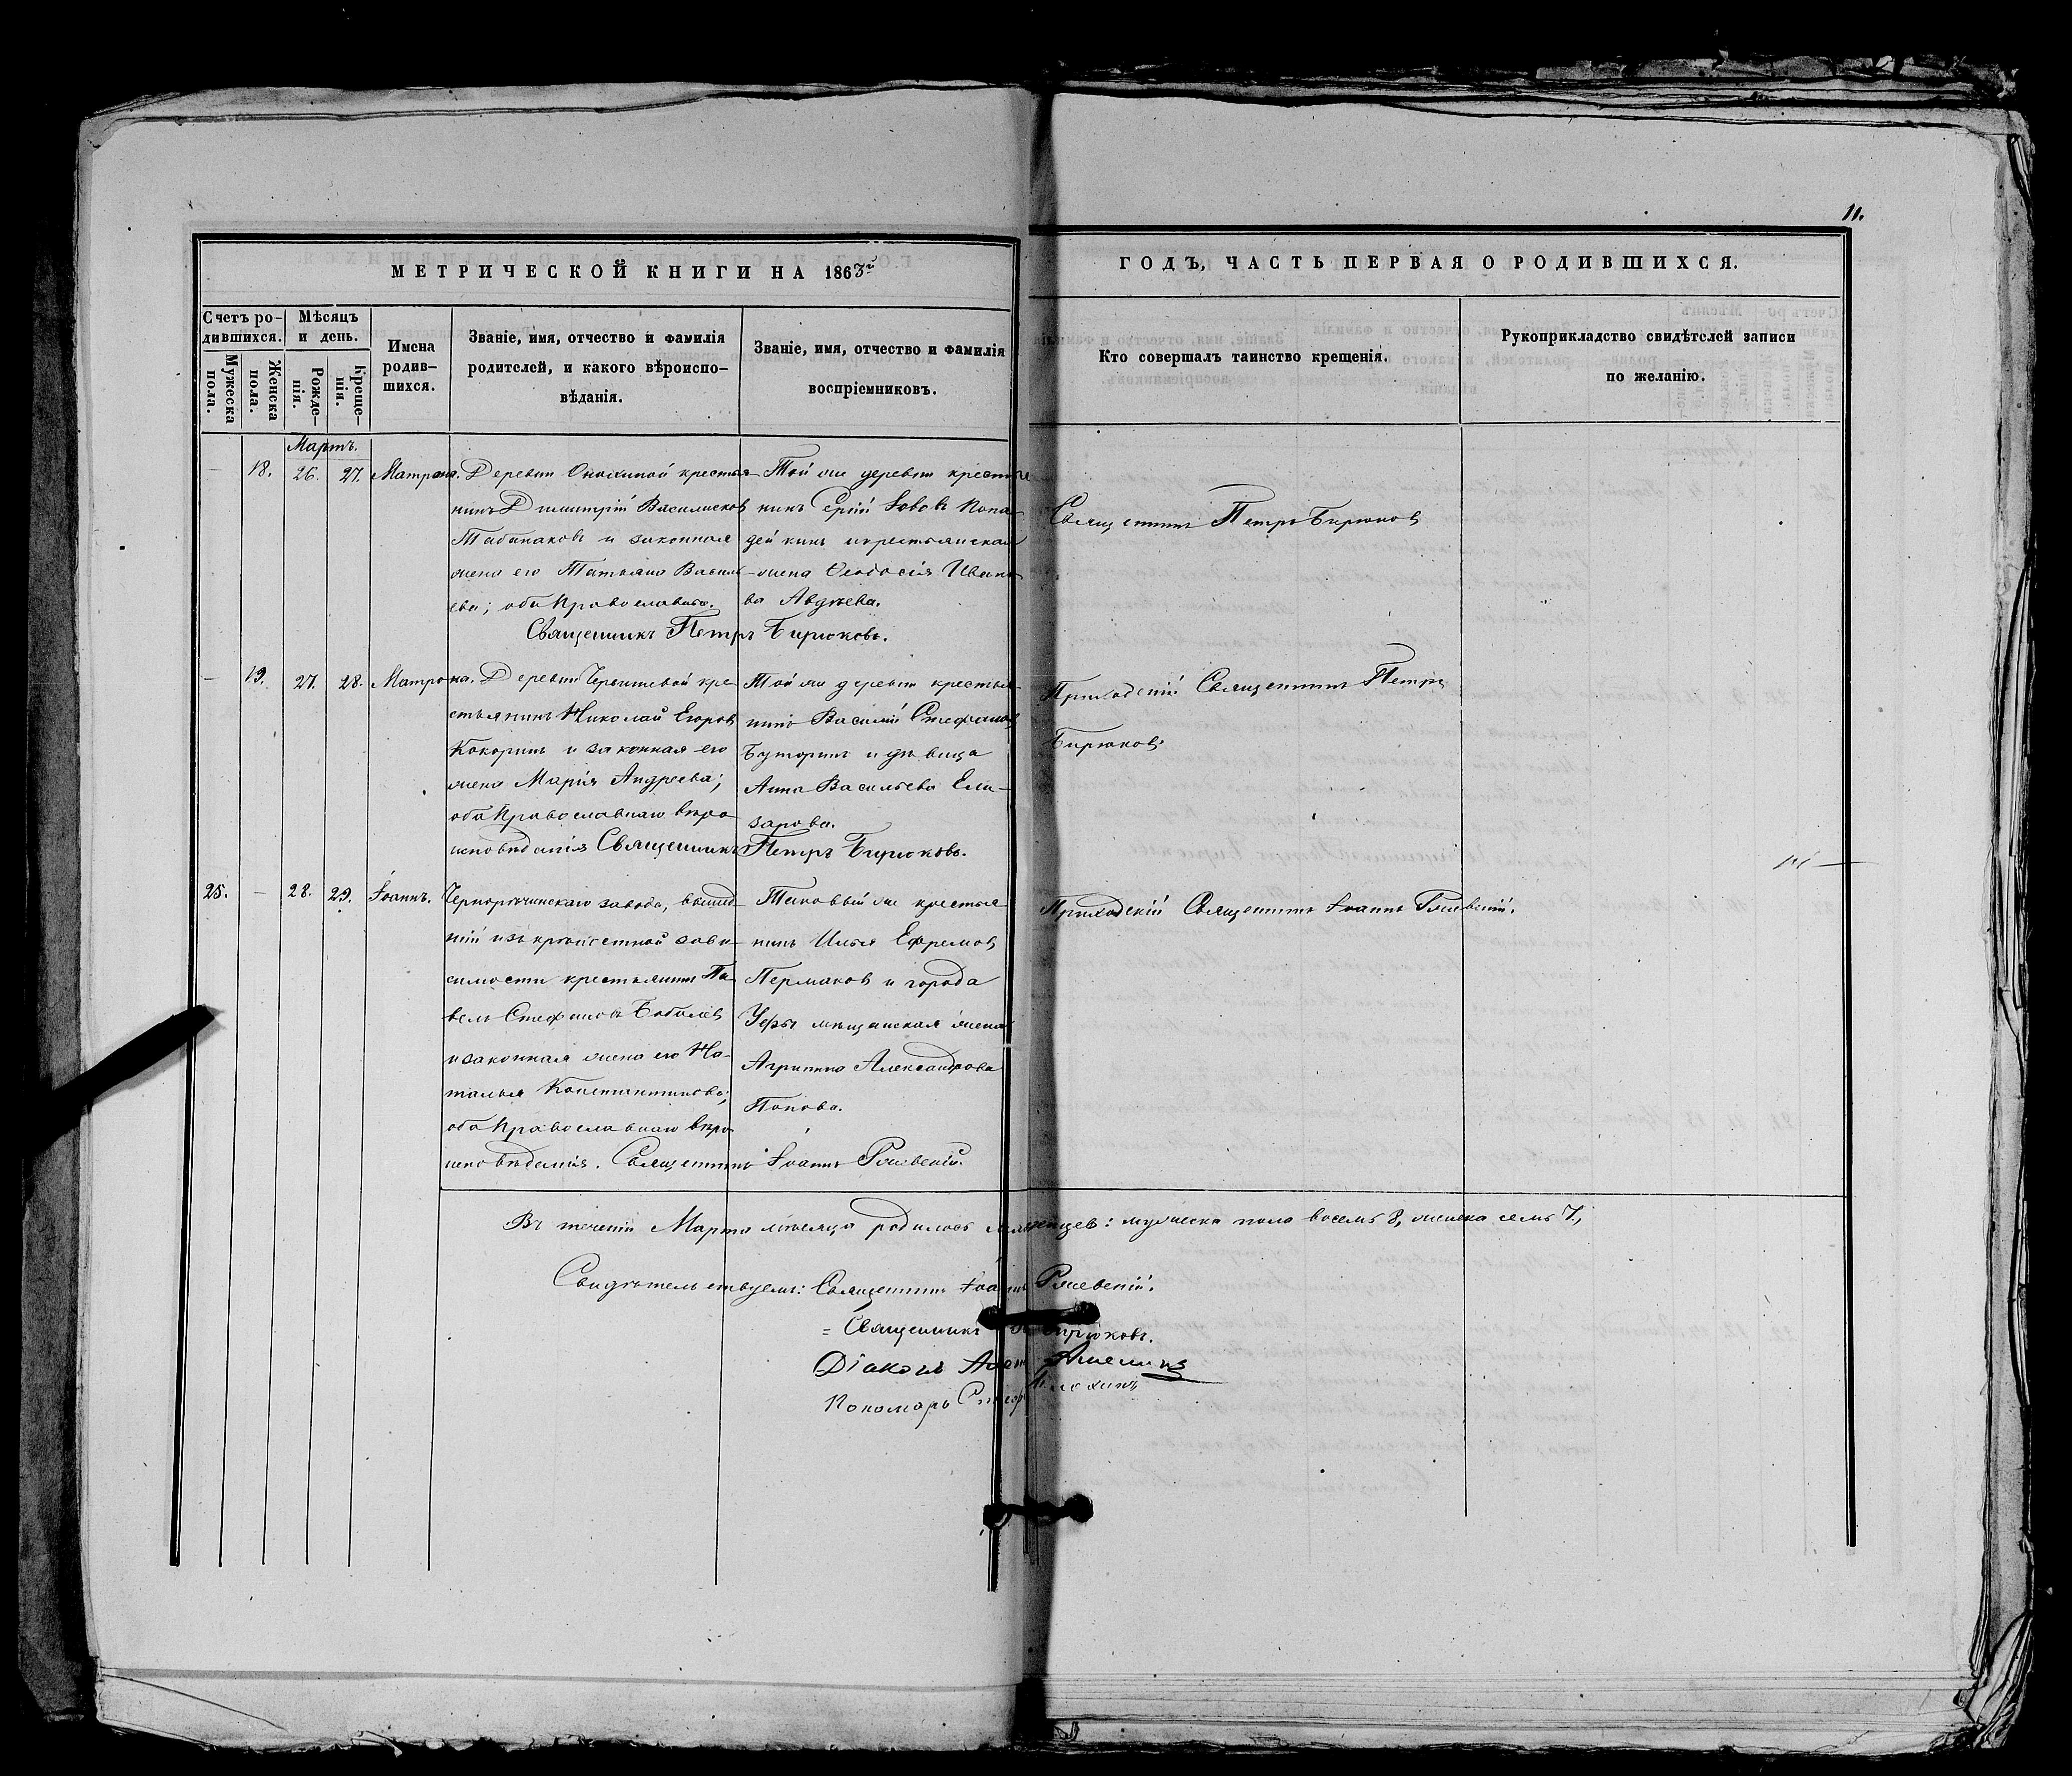 11.
МЕТРИЧЕСКОЙ КНИГИ НА 1863й
ГОДЪ, ЧАСТЬ ПЕРВАЯ О РОДИВШИХСЯ.
Счетъ ро-
дившихся.
Мужеска
пола.
Женска
пола.
Мѣсяцъ
и день.
Рожде-
нія.
Креще-
нія.
Имена
родив-
шихся.
Званіе, имя, отчество и фамилія
родителей, и какого вѣроиспо-
вѣданія.
Званіе, имя, отчество и фамилія
воспріемниковъ.
Кто совершалъ таинство крещенія.
Рукоприкладство свидѣтелей записи
по желанію.
Мартъ.
— 18. 26. 27. Матрона.
Деревни крестья-
нинъ Димитрій Васильевъ
Табанаковъ и законная
жена его Татьяна Василь-
ева; оба православнаго.
Той же деревни крестья-
нинъ Іововъ Копа-
дейкинъ и крестьянская
жена Ѳеодосія Ивано-
ва Авдѣева.
Священникъ Петръ Бирюковъ.
Священникъ Петръ Бирюковъ
— 19. 27. 28. Матрона.
Деревни кре-
стьянинъ Николай Егоровъ
Кокоринъ и законная его
жена Марія Андреева;
оба православнаго вѣро-
исповѣданія
Той же деревни крестья-
нинъ Василій Стефановъ
Буторинъ и дѣвица
Анна Васильева Ели-
зарова.
Священникъ Петръ Бирюковъ.
Приходскій Священникъ Петръ
Бирюковъ.
25. — 28. 29. Іоаннъ.
Чернорѣчинскаго завода, вышед-
шій изъ крѣпостной зави-
симости крестьянинъ Па-
велъ Стефановъ
и законная жена его На-
талья Константинова;
оба православнаго вѣро-
исповѣданія.
Таковый же крестья-
нинъ Илья Ефремовъ
Пермяковъ и города
Уфы мѣщанская жена
Агрипина Александрова
Попова.
Священникъ Іоаннъ Ряжевскій.
Приходскій Священникъ Іоаннъ Ряжевскій.
Въ теченіи Марта мѣсяца родилось младенцев: мужеска пола восемь 8, женска семь 7.,
Свидѣтельствуемъ: Священникъ Іоаннъ Ряжевскій.
= Священникъ Бирюковъ.
Діаконъ
Пономарь